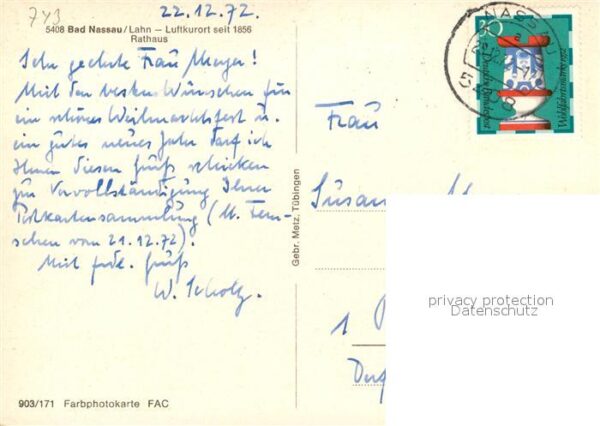 743
22.12.72.
5408 Bad Nassau/Lahn – Luftkurort seit 1856
Rathaus
Sehr geehrte Frau Meyer!
Mit den besten Wünschen für
ein schönes Weihnachtsfest u.
ein gutes neues Jahr darf ich
Ihnen diesen Gruß schicken
zur Vervollständigung Ihrer
Postkartensammlung (lt. Fern-
sehen vom 21.12.72).
Mit frdl. Gruß
W. Scholz.
903/171 Farbphotokarte FAC
Gebr. Metz, Tübingen
NASSAU
5408
30
Deutsche Bundespost
Wohlfahrtsmarke
Frau
Susan
1
privacy protection
Datenschutz